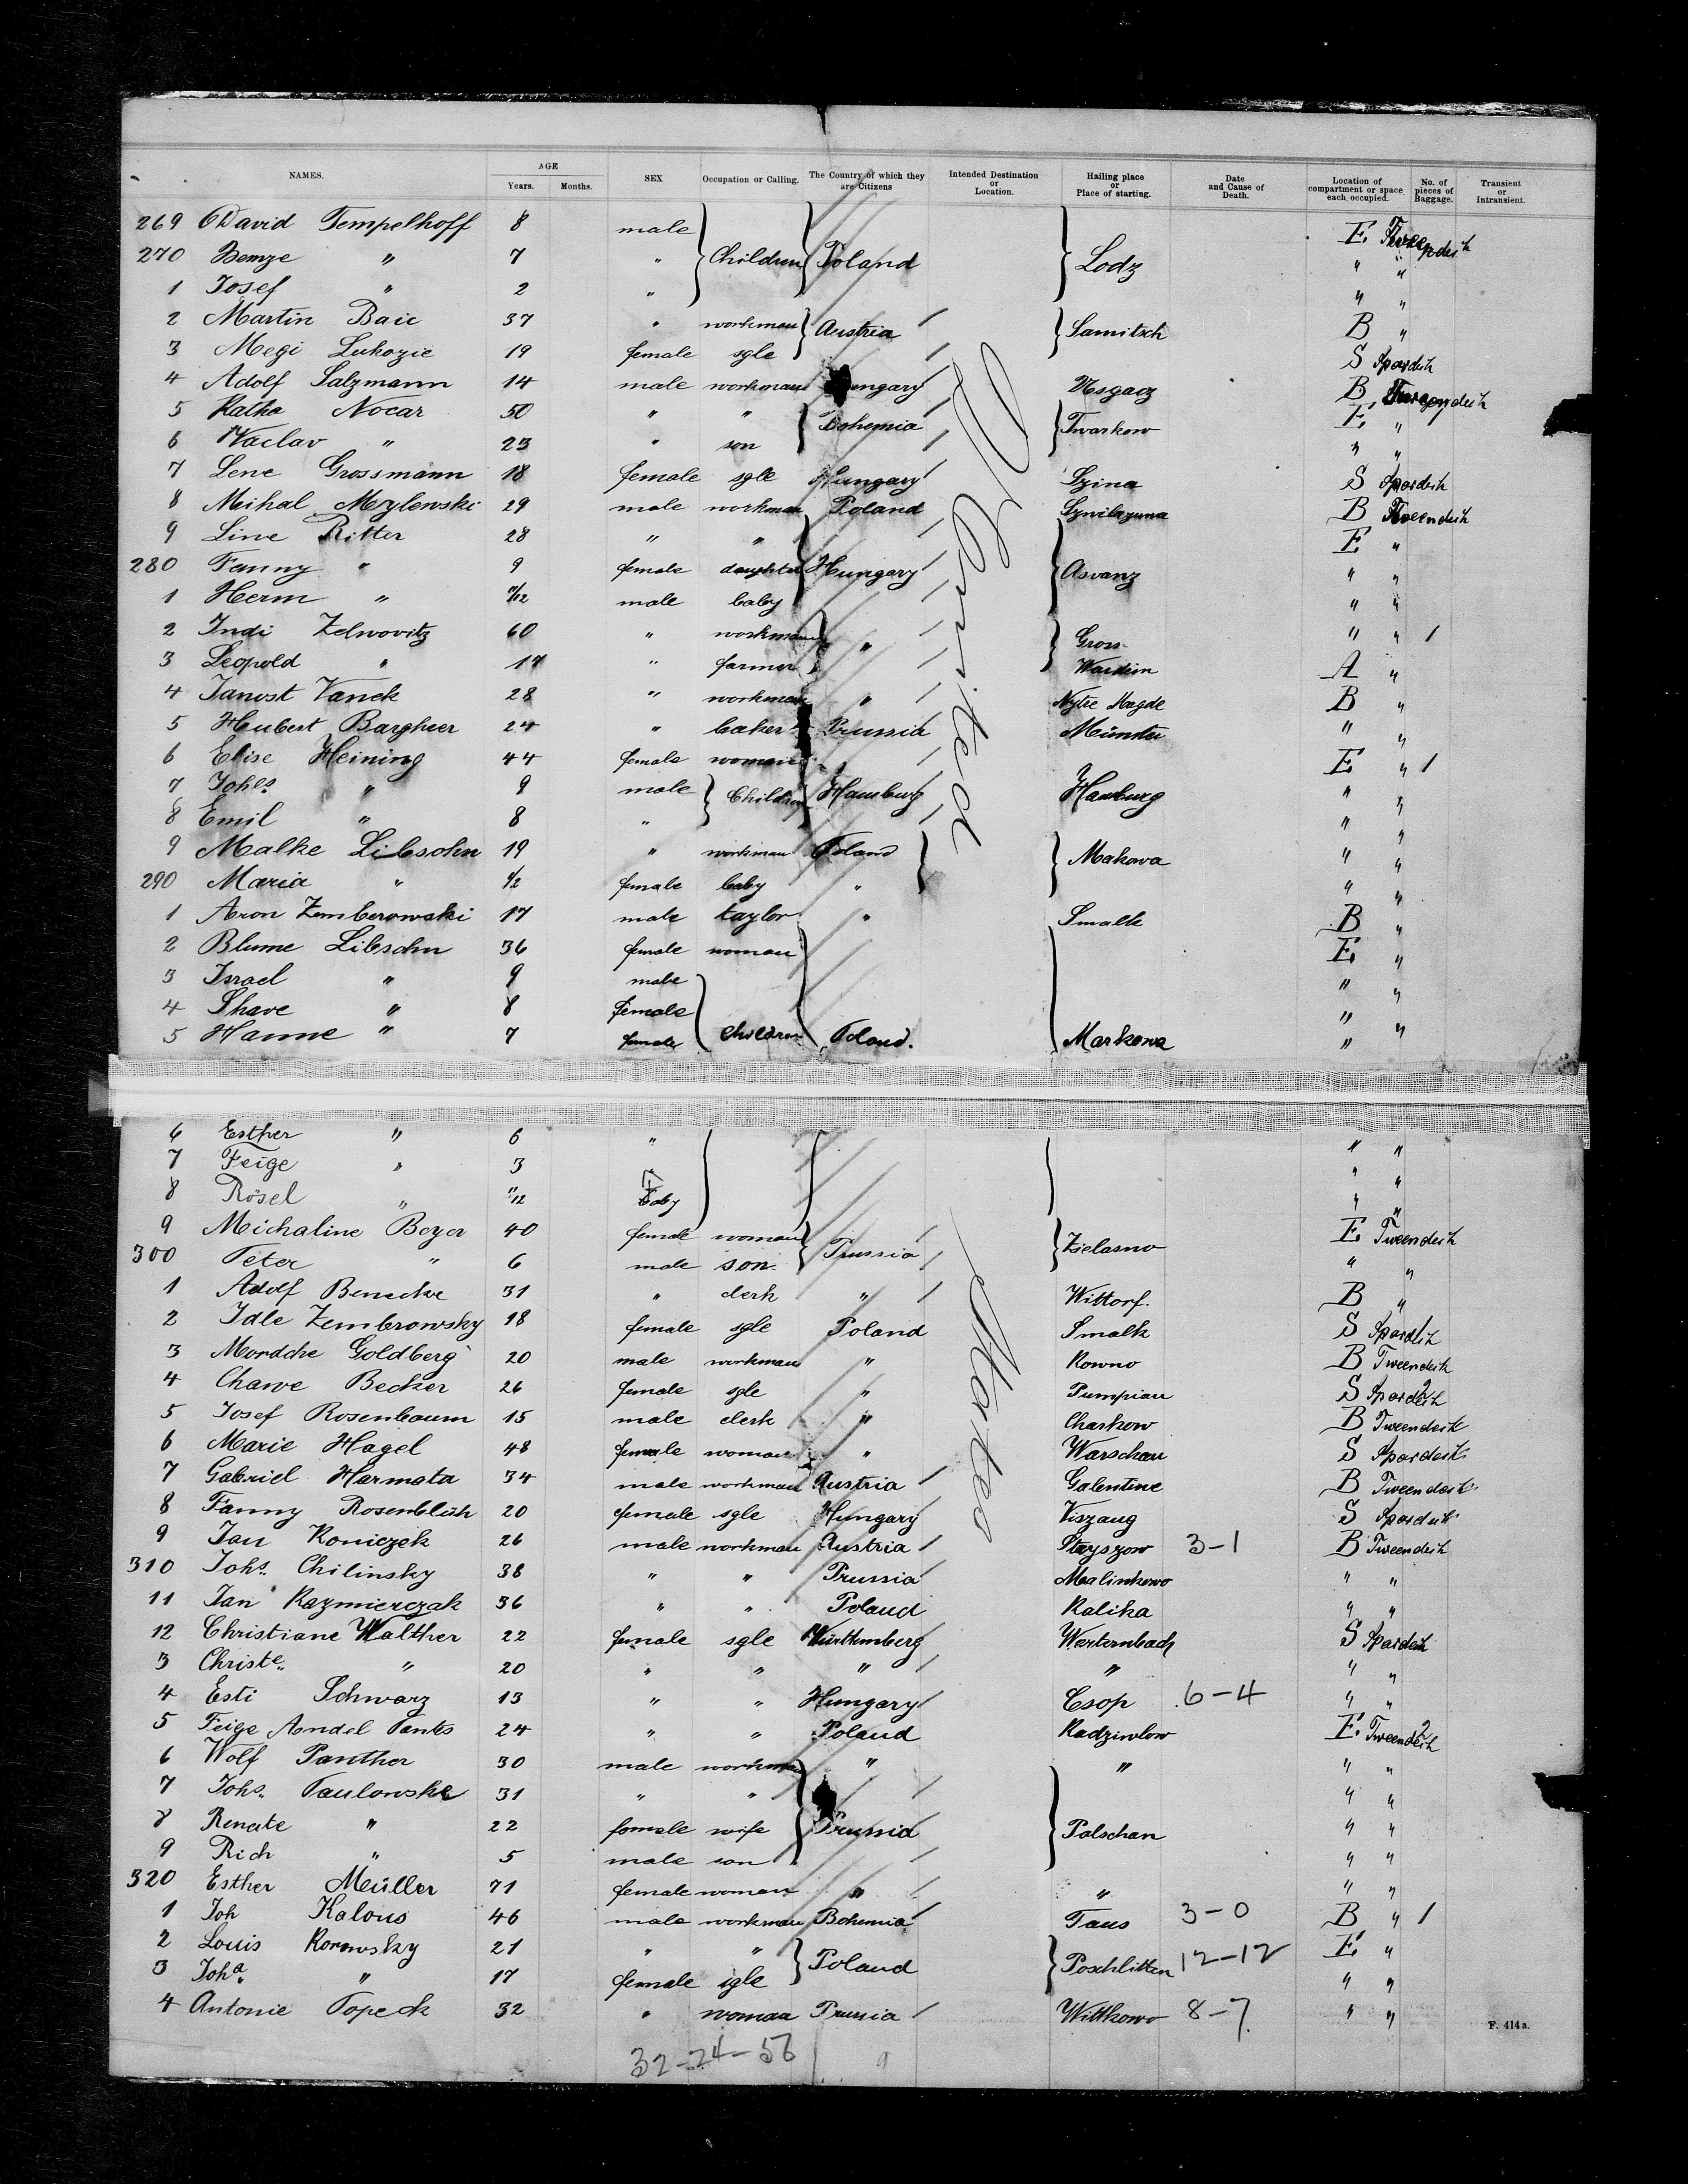 NAMES. AGE Years. Months. SEX Occupation or Calling. The Country of which they are Citizens Intended Destination or Location. Hailing place or Place of starting. Date and Cause of Death. Location of compartment or space each occupied. No. of pieces of Baggage. Transient or Intransient.
269 David Tempelhoff 8 male E
270 Bemze " 7 " Children Poland Lodz " "
1 Josef " 2 " " "
2 Martin Baic 37 " workman Austria Samitsch B "
3 Megi Lukozie 19 female sgle S Spardeck
4 Adolf Salzmann 14 male workman Hungary B
5 Katha Nocar 50 " " Bohemia Twarkow E "
6 Waclav " 23 " son " "
7 Lene Grossmann 18 female sgle Hungary Szina S Spardeck
8 Mihal Mezlewski 29 male workman Poland B Tweendeck
9 Line Ritter 28 " " E "
280 Fanny " 9 female daughter Hungary Asvanz " "
1 Herm " 9/12 male baby " "
2 Indi Zelwovitz 60 " workman " Gross- " " 1
3 Leopold " 17 " farmer Wardein A "
4 Janost Vanek 28 " workman " Nytre Magde B "
5 Hubert Bargheer 24 " baker Prussia Münster " "
6 Elise Heining 44 female woman E " 1
7 Johs. " 9 male Children Hamburg Hamburg " "
8 Emil " 8 " " "
9 Malke Libsohn 19 " workman Poland Makowa " "
290 Maria " 1/2 female baby " " "
1 Aron Zemberowski 17 male taylor " Smalk B "
2 Blume Libsohn 36 female woman E "
3 Israel " 9 male " "
4 Shave " 8 female " "
5 Hanne " 7 female Children Poland. Markowa "
United States
6 Esther " 6 " " "
7 Feige " 3 " "
8 Rösel " 11/12 Baby " "
9 Michaline Beyer 40 female woman Prussia Zielasno E Tweendeck
300 Peter " 6 male son " "
1 Adolf Benecke 31 " clerk " Wittorf. B "
2 Idle Zembrowsky 18 female sgle Poland Smalk S Spardeck 1
3 Mordche Goldberg 20 male workman " Kowno B Tweendeck
4 Chawe Becker 26 female sgle " Pumpian S Spardeck 2
5 Josef Rosenbaum 15 male clerk " Charkow B Tweendeck
6 Marie Hagel 48 female woman " Warschau S Spardeck
7 Gabriel Harmata 34 male workman Austria Galentine B Tweendeck
8 Fanny Rosenblüh 20 female sgle Hungary Viszaug S Spardeck
9 Jan Koniczek 26 male workman Austria Stayszow 3-1 B Tweendeck
310 Johs. Chilinsky 38 " " Prussia Malinkowo " "
11 Jan Kazmierczak 36 " " Poland Kalika " "
12 Christiane Walther 22 female sgle Württemberg Warternbach S Spardeck
3 Christe. " 20 " " " " " "
4 Esti Schwarz 13 " " Hungary Csop 6-4 " "
5 Feige Aendel Pants 24 " " Poland Radziwlow E Tweendeck 2
6 Wolf Panther 30 male workman " " " "
7 Johs. Paulowske 31 " " " "
8 Renate " 22 female wife Prussia Polschan " "
9 Rich " 5 male son " "
320 Esther Meüller 71 female woman " " " "
1 Joh Kalous 46 male workman Bohemia Taus 3-0 B " 1
2 Louis Korowsky 21 " " Poland Poschlitten 12-12 E "
3 Joha. " 17 female sgle " "
4 Antonie Popeck 32 " woman Prussia Wittkowo 8-7 " "
F. 414a.
32-24-56 9